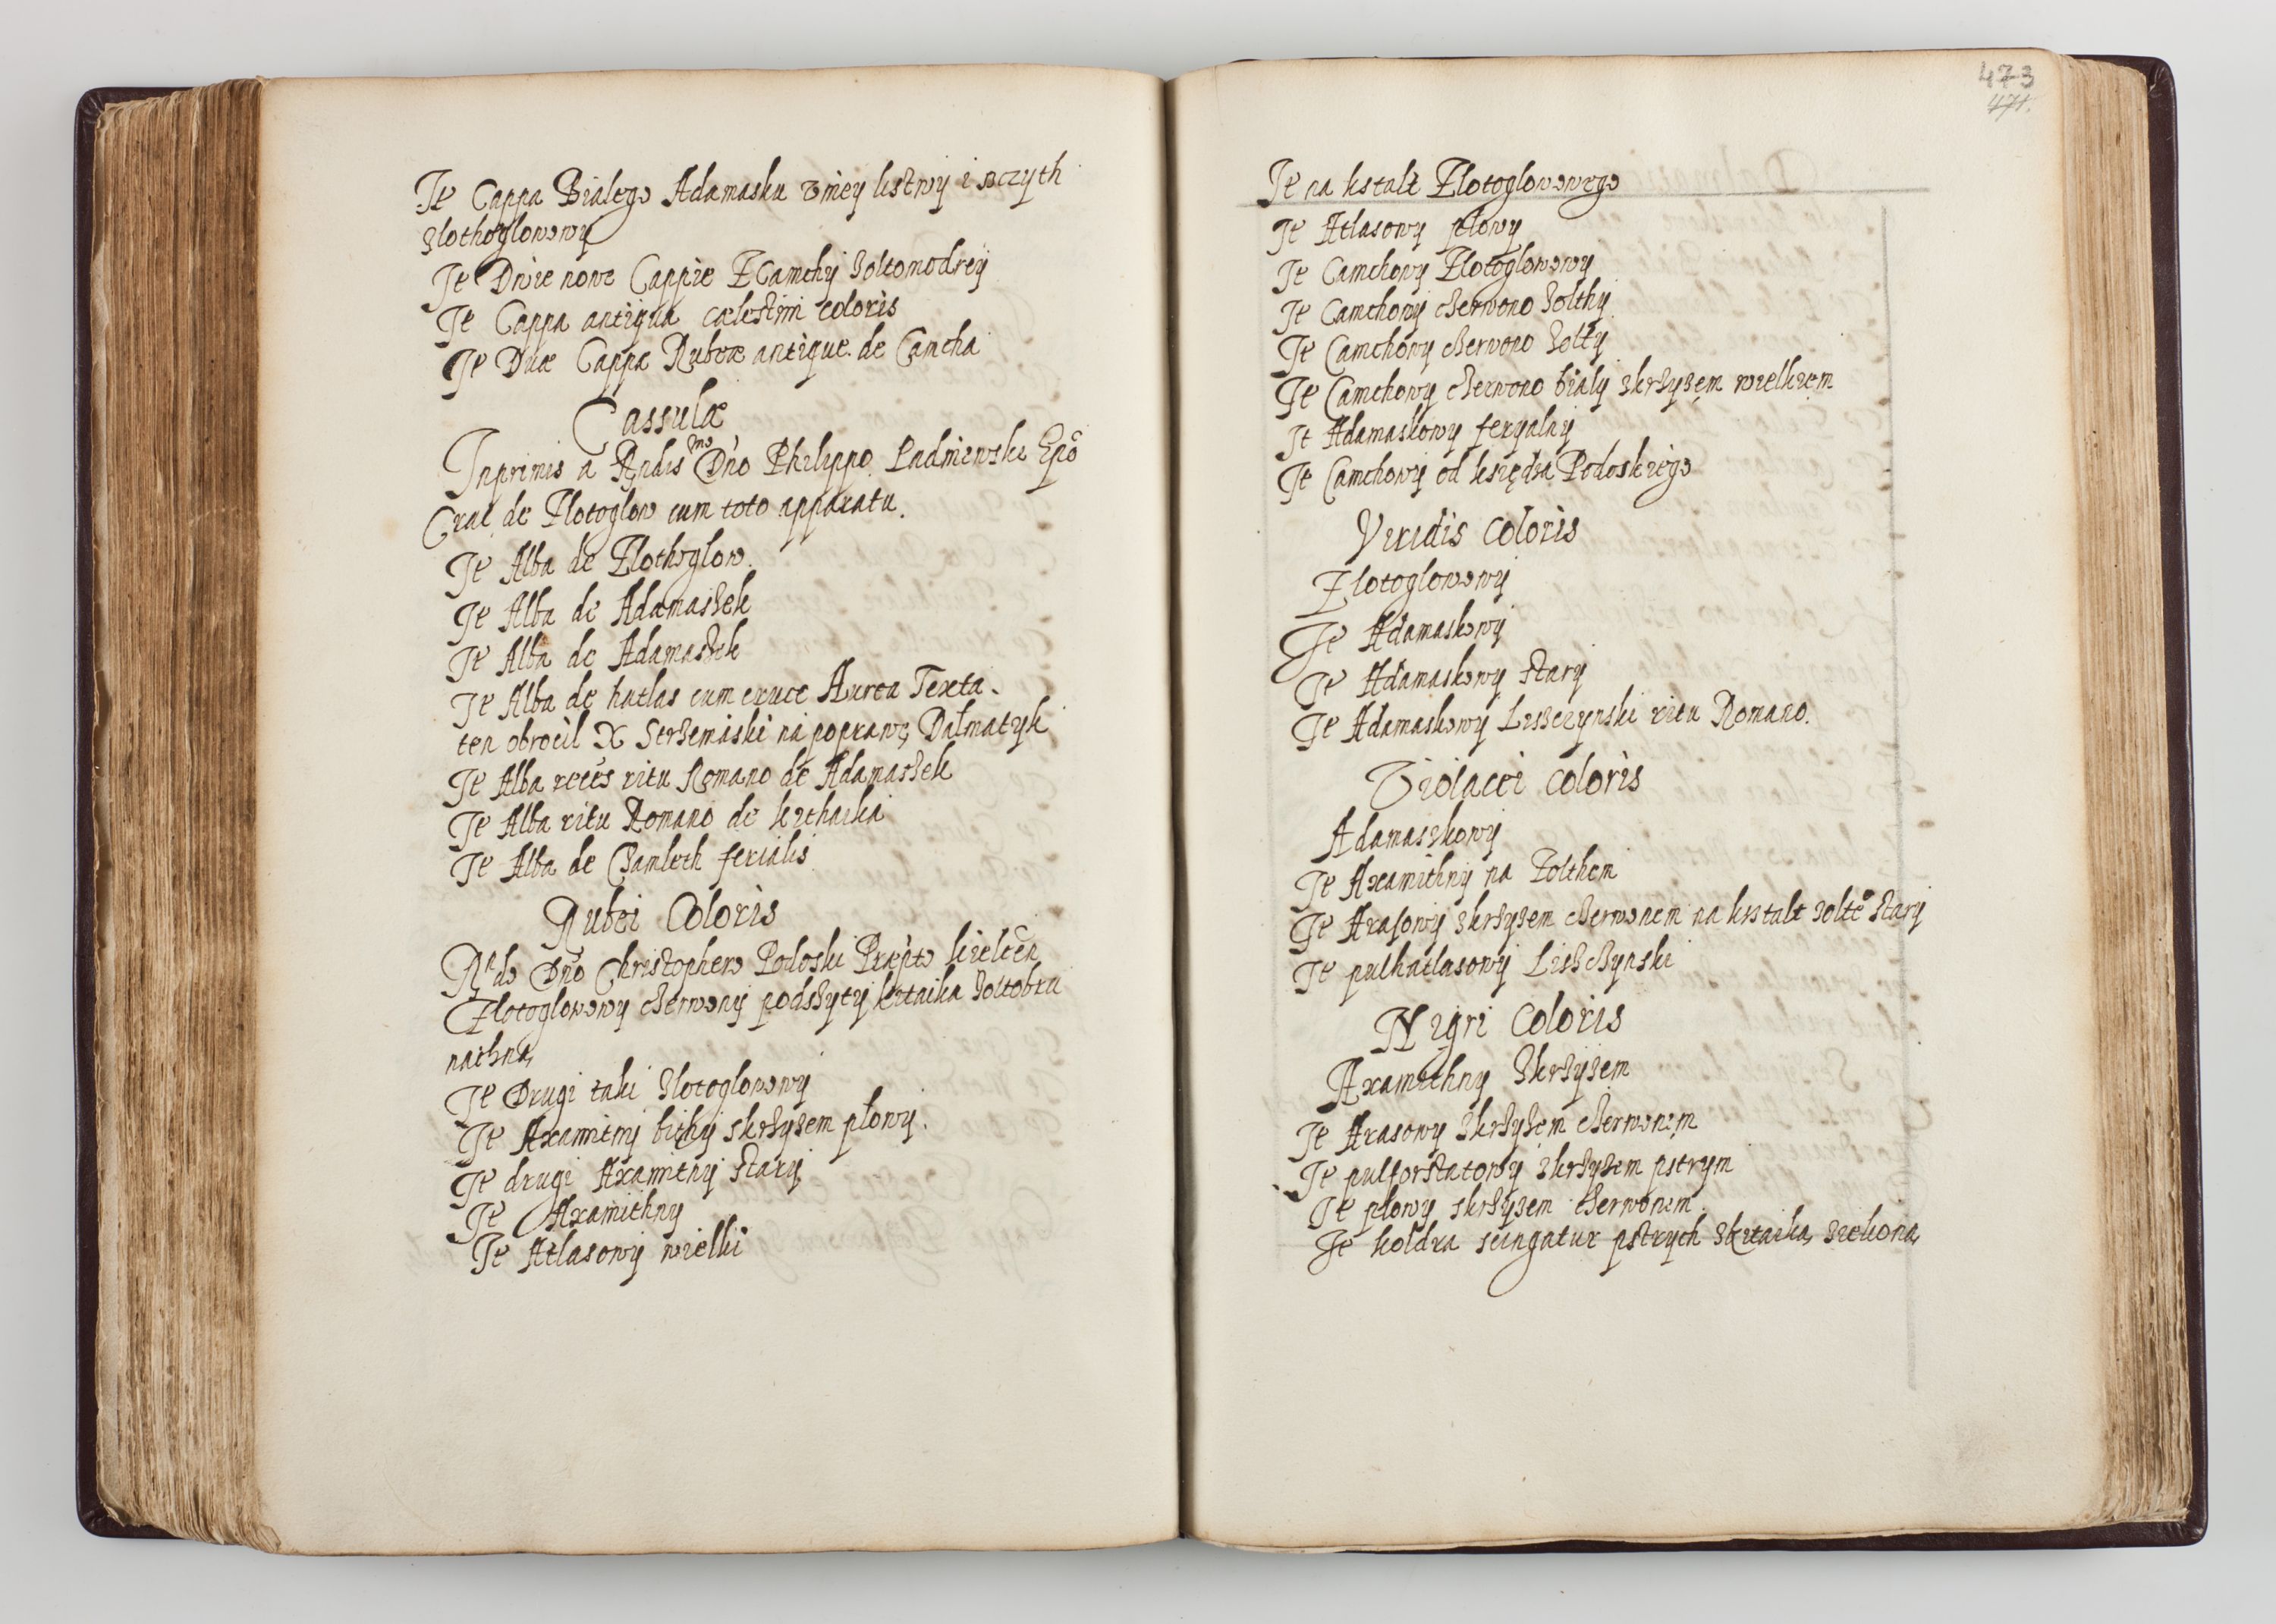 It Cappa Bialego Adamasku v niey listwy i sczyth
zlothoglowowy
It Dwie nowe Cappie Z Camchy zoltomodrey
It Cappa antiqua cœlestini coloris
It Duæ Cappæ Rubeæ antiquæ de Camcha
Cassulæ
Inprimis a Rndis mo Dno Philippo Padniewski Epo
Crac de Zlotoglow cum toto apparatu.
It Alba de Zlothoglow
It Alba de Adamaszek
It Alba de Adamaszek
It Alba de hatlas cum cruce Aurea Texta.
ten obrocil X Strzemiski na poprawę Dalmatyk
It Alba recēs ritu Romano de Adamaszek
It Alba ritu Romano de kithaika
It Alba de Czamleth ferialis
Rubei Coloris
Rdo Dno Christophero Podoski Præpto kielcen
Zlotoglowowy czerwony podszyty kitaika zoltobru
nathną
It Drugi taki zlotoglowowy
It Axamitny bithy skrzyzem plowy.
It drugi Axamitny stary
It Axamithny
It Atlasowy wielki
473
471.
It na kstalt Zlotoglowowego
It Atlasowy plowy
It Camchowy Zlotoglowowy
It Camchowy czerwono zolthy
It Camchowy czerwono zolty
It Camchowy czerwono bialy skrzyzem wielkiem
It Adamaskowy feryalny
It Camchowy od księdza Podoskiego
Viridis Coloris
Zlotoglowowy
It Adamaskowy
It Adamaskowy stary
It Adamaskowy Liszczynski ritu Romano.
Violacei coloris
Adamaszkowy
It Axamithny na Zolthem
It Arasowy skrzyzem czerwonem na kstalt zolte stary
It pulhatlasowy Liszczynski
Nigri Coloris
Axamithny Skrzyzem
It Arasowy skrzyzem czerwonem
It pulforstatowy skrzyzem pstrym
It plowy skrzyzem czerwonem
It koldra pstrych skitaiką zieloną